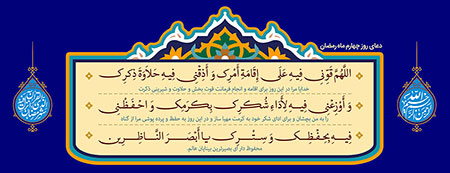 دعای روز چهارم ماه رمضان
اللَّهُمَّ قَوِّنِي فِيهِ عَلَى إِقَامَةِ أَمْرِكَ وَ أَذِقْنِي فِيهِ حَلاَوَةَ ذِكْرِكَ
خدایا مرا در این روز برای اقامه و انجام فرمانت قوت بخش و حلاوت و شیرینی ذکرت
وَ أَوْزِعْنِي فِيهِ لِأَدَاءِ شُكْرِكَ بِكَرَمِكَ وَ احْفَظْنِي
را به من بچشان و برای ادای شکر خود به کرمت مهیا ساز و در این روز به حفظ و پرده پوشی مرا از گناه
فِيهِ بِحِفْظِكَ وَ سِتْرِكَ يَا أَبْصَرَ النَّاظِرِينَ
محفوظ دار ای بصیرترین بینایان عالم.